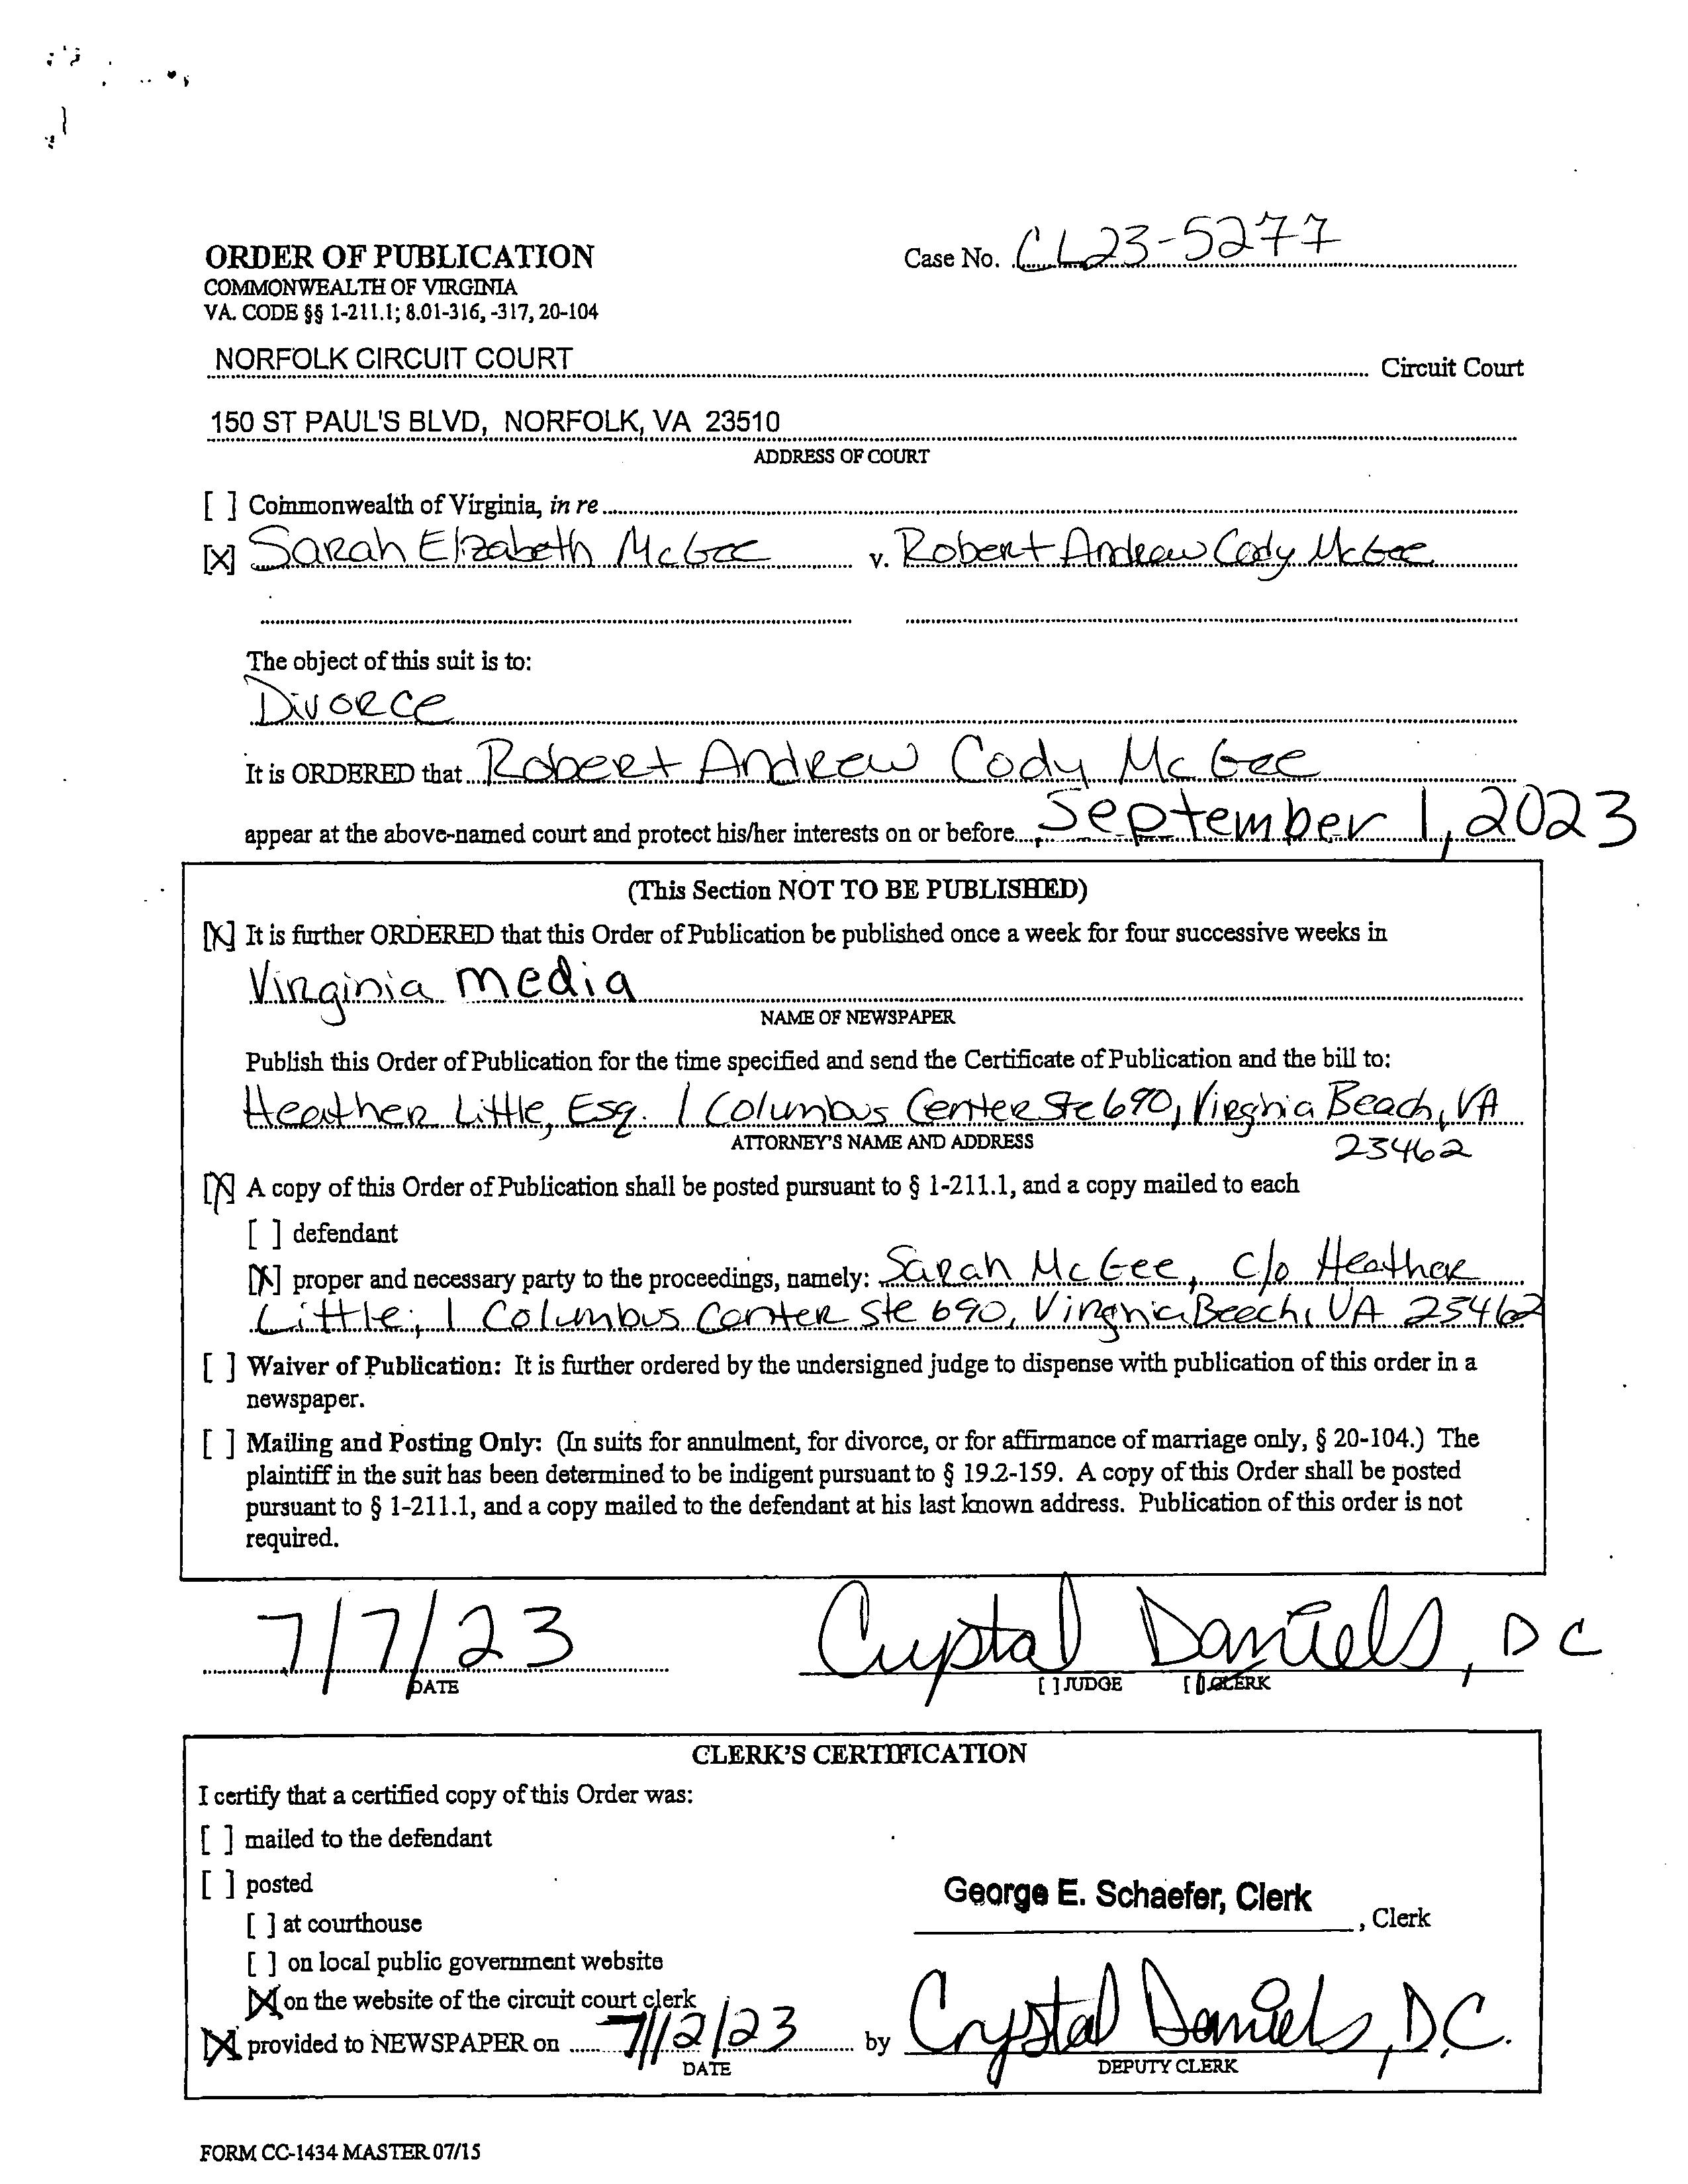 ORDER OF PUBLICATION
Case No. CL23-5277
COMMONWEALTH OF VIRGINIA
VA. CODE §§ 1-211.1; 8.01-316, -317, 20-104
NORFOLK CIRCUIT COURT Circuit Court
150 ST PAUL'S BLVD, NORFOLK, VA 23510
ADDRESS OF COURT
[ ] Commonwealth of Virginia, in re
[X] Sarah Elizabeth McGee v. Robert Andrew Cody McGee
The object of this suit is to:
Divorce
It is ORDERED that Robert Andrew Cody McGee
appear at the above-named court and protect his/her interests on or before September 1, 2023
(This Section NOT TO BE PUBLISHED)
[X] It is further ORDERED that this Order of Publication be published once a week for four successive weeks in
Virginia media
NAME OF NEWSPAPER
Publish this Order of Publication for the time specified and send the Certificate of Publication and the bill to:
Heather Little, Esq. 1 Columbus Center Ste 690, Virginia Beach, VA
ATTORNEY'S NAME AND ADDRESS
23462
[X] A copy of this Order of Publication shall be posted pursuant to § 1-211.1, and a copy mailed to each
[ ] defendant
[X] proper and necessary party to the proceedings, namely: Sarah McGee, c/o Heather
Little, 1 Columbus Center Ste 690, Virginia Beach, VA 23462
[ ] Waiver of Publication: It is further ordered by the undersigned judge to dispense with publication of this order in a
newspaper.
[ ] Mailing and Posting Only: (In suits for annulment, for divorce, or for affirmance of marriage only, § 20-104.) The
plaintiff in the suit has been determined to be indigent pursuant to § 19.2-159. A copy of this Order shall be posted
pursuant to § 1-211.1, and a copy mailed to the defendant at his last known address. Publication of this order is not
required.
7/7/23 Crystal Daniels, DC
DATE [ ] JUDGE [X] CLERK
CLERK'S CERTIFICATION
I certify that a certified copy of this Order was:
[ ] mailed to the defendant
[ ] posted
George E. Schaefer, Clerk
[ ] at courthouse
, Clerk
[ ] on local public government website
[X] on the website of the circuit court clerk
[X] provided to NEWSPAPER on 7/12/23 by Crystal Daniels, D.C.
DATE DEPUTY CLERK
FORM CC-1434 MASTER 07/15